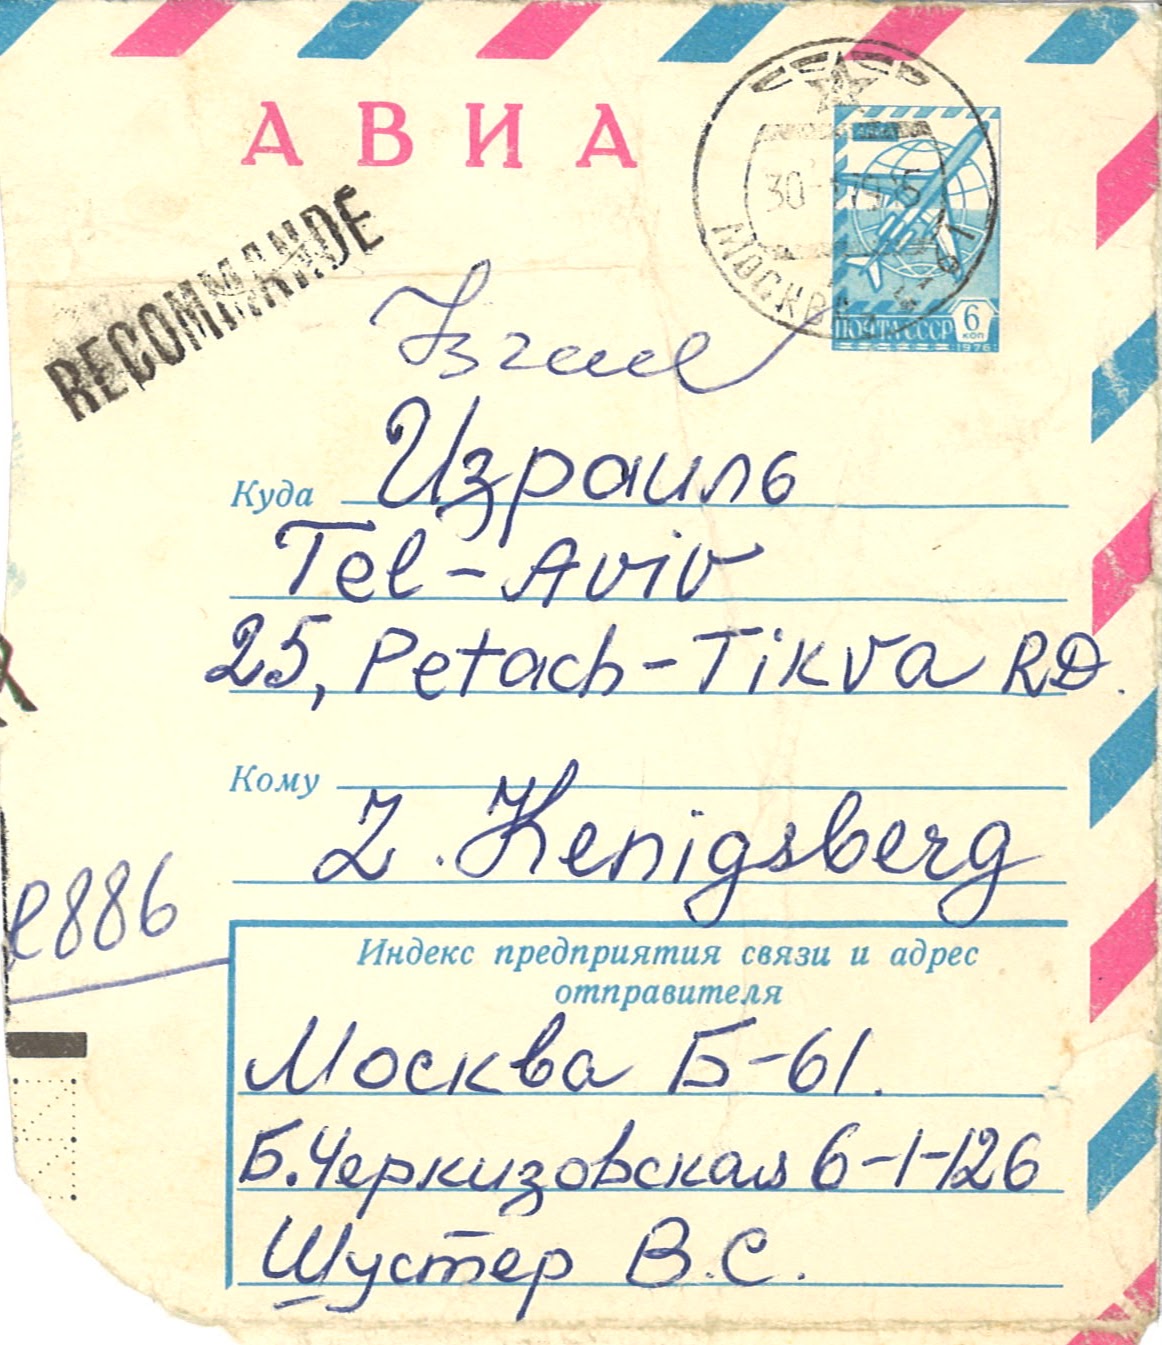 АВИА
RECOMMANDE
МОСКВА
ПОЧТА СССР 6 КОП
1976
Israel
Куда Израиль
Tel-Aviv
25, Petach-Tikva RD.
Кому
Z. Kenigsberg
886
Индекс предприятия связи и адрес
отправителя
Москва Б-61.
Б.Черкизовская 6-1-126
Шустер В.С.